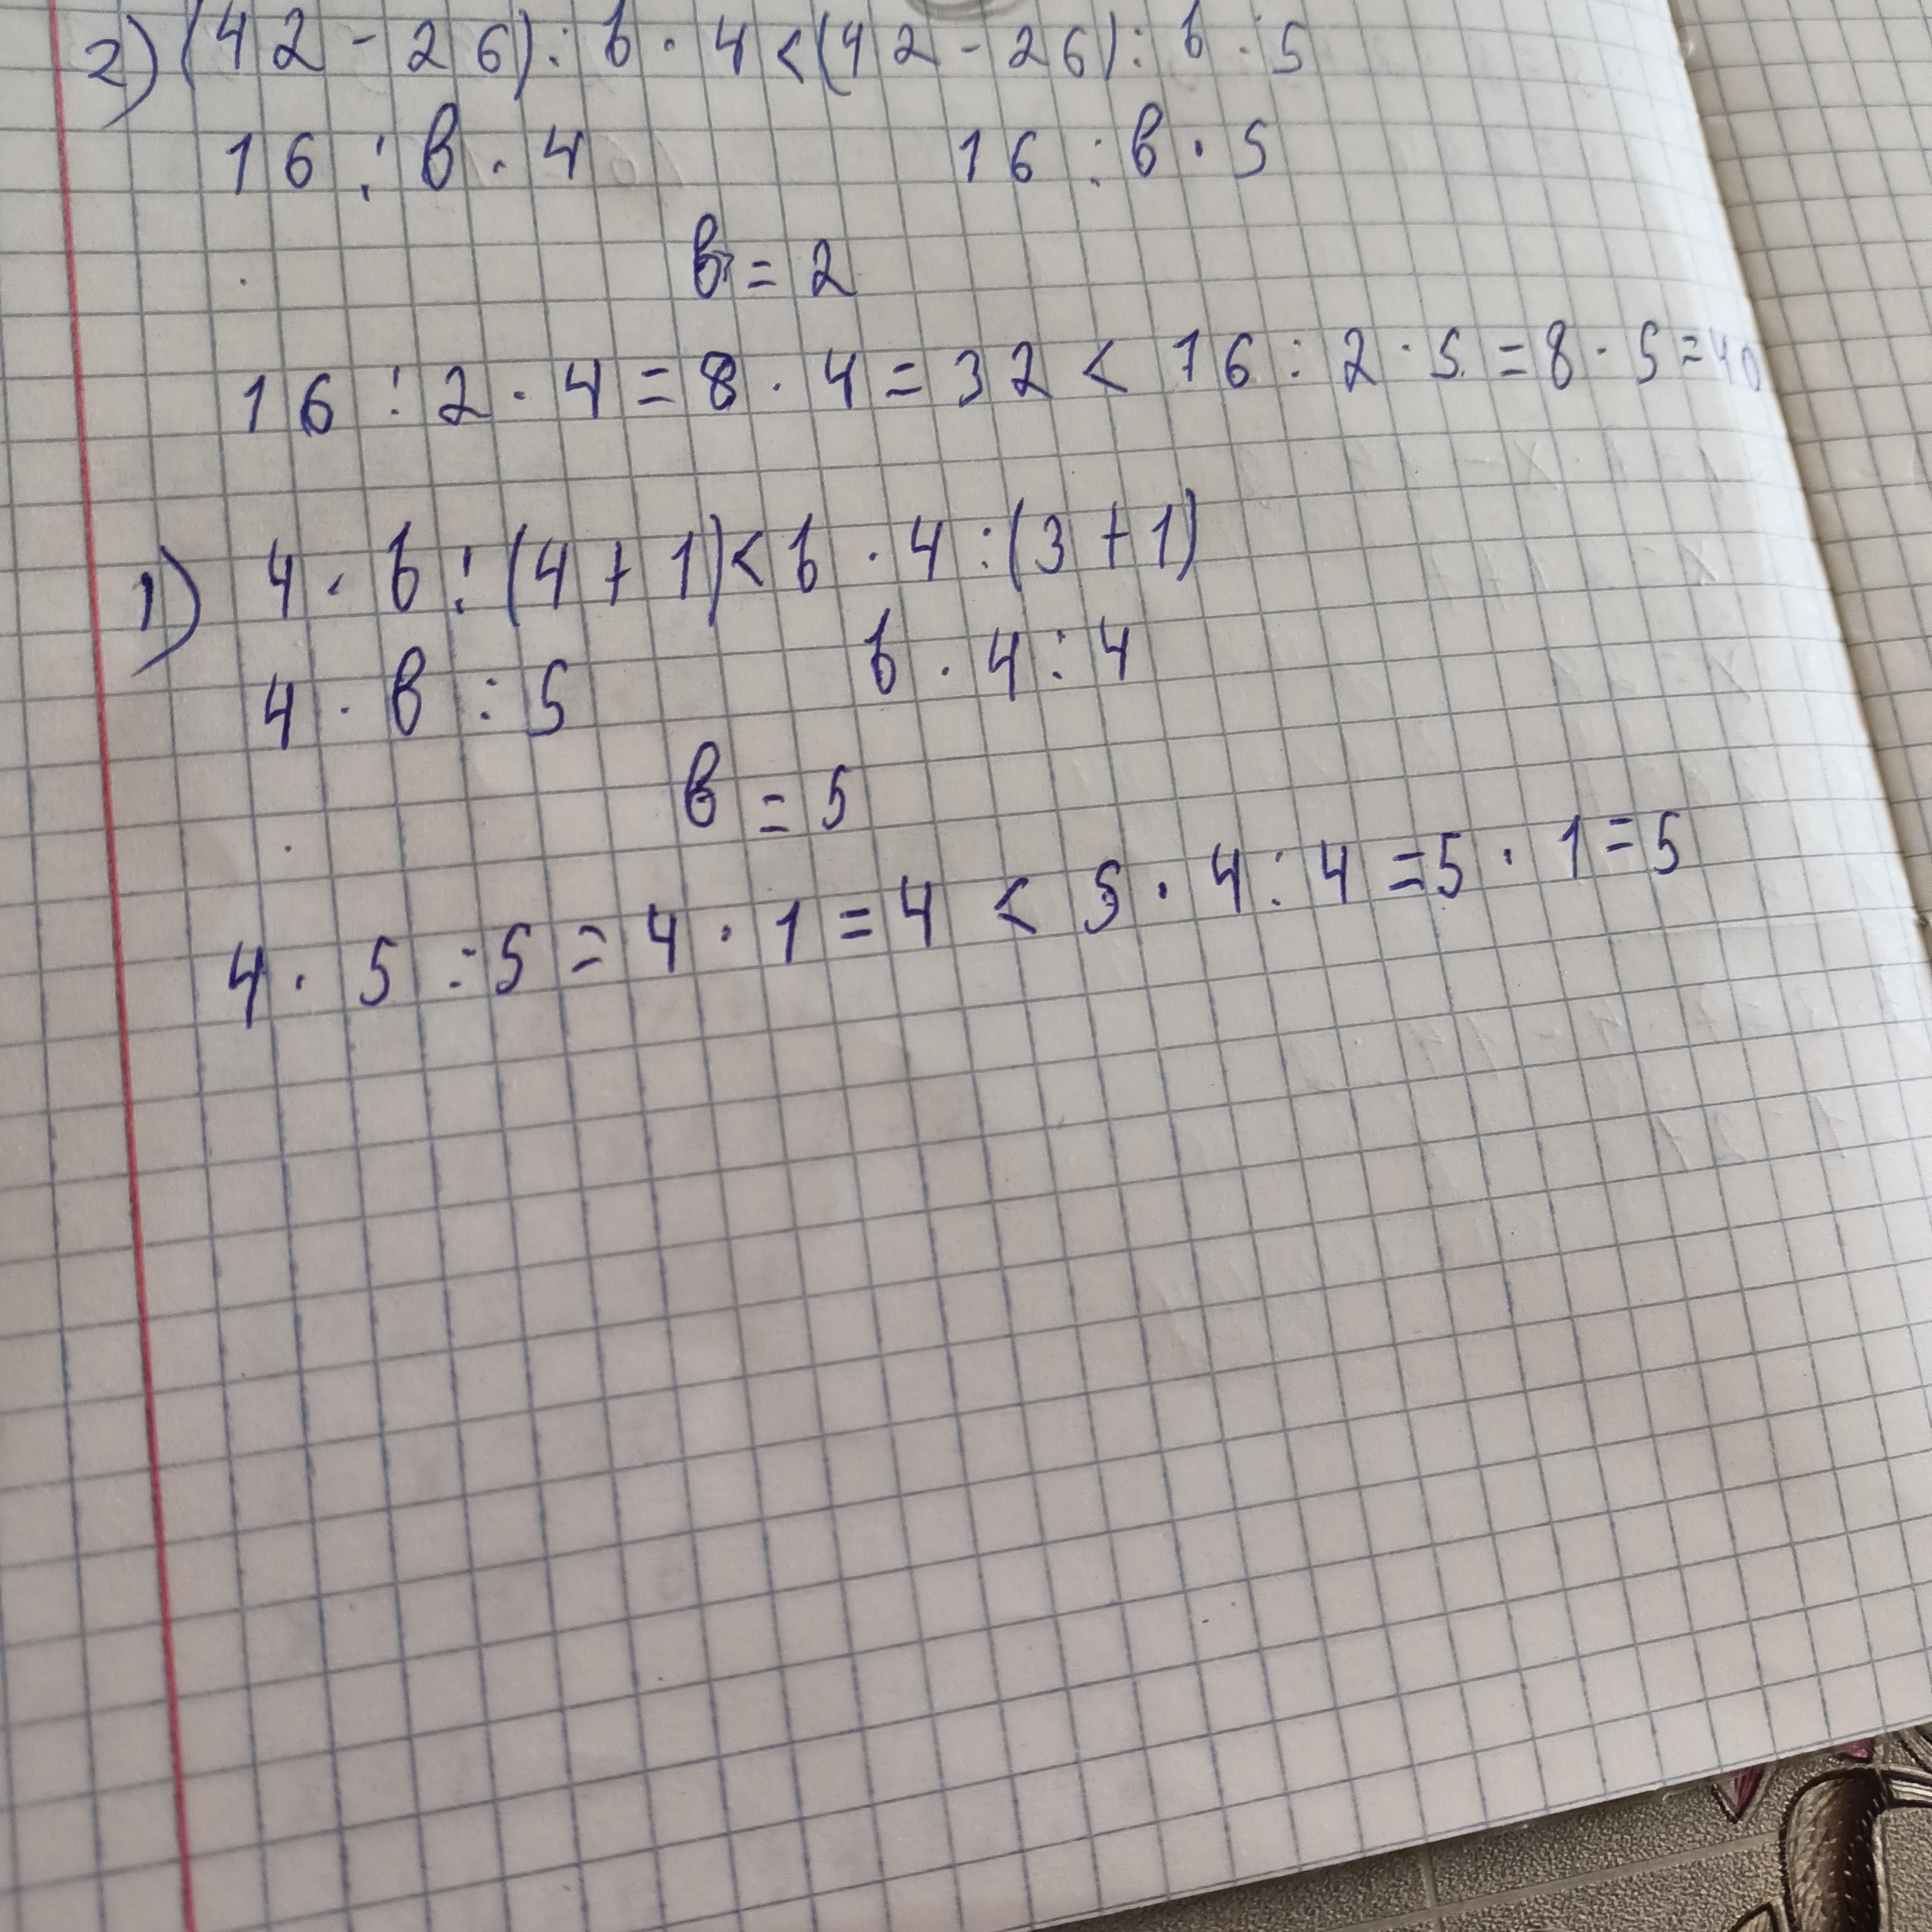 2) (42 - 26) : b · 4 < (42 - 26) : b · 5
16 : b · 4 16 : b · 5
b = 2
16 : 2 · 4 = 8 · 4 = 32 < 16 : 2 · 5 = 8 · 5 = 40
1) 4 · b : (4 + 1) < b · 4 : (3 + 1)
4 · b : 5 b · 4 : 4
b = 5
4 · 5 : 5 = 4 · 1 = 4 < 5 · 4 : 4 = 5 · 1 = 5